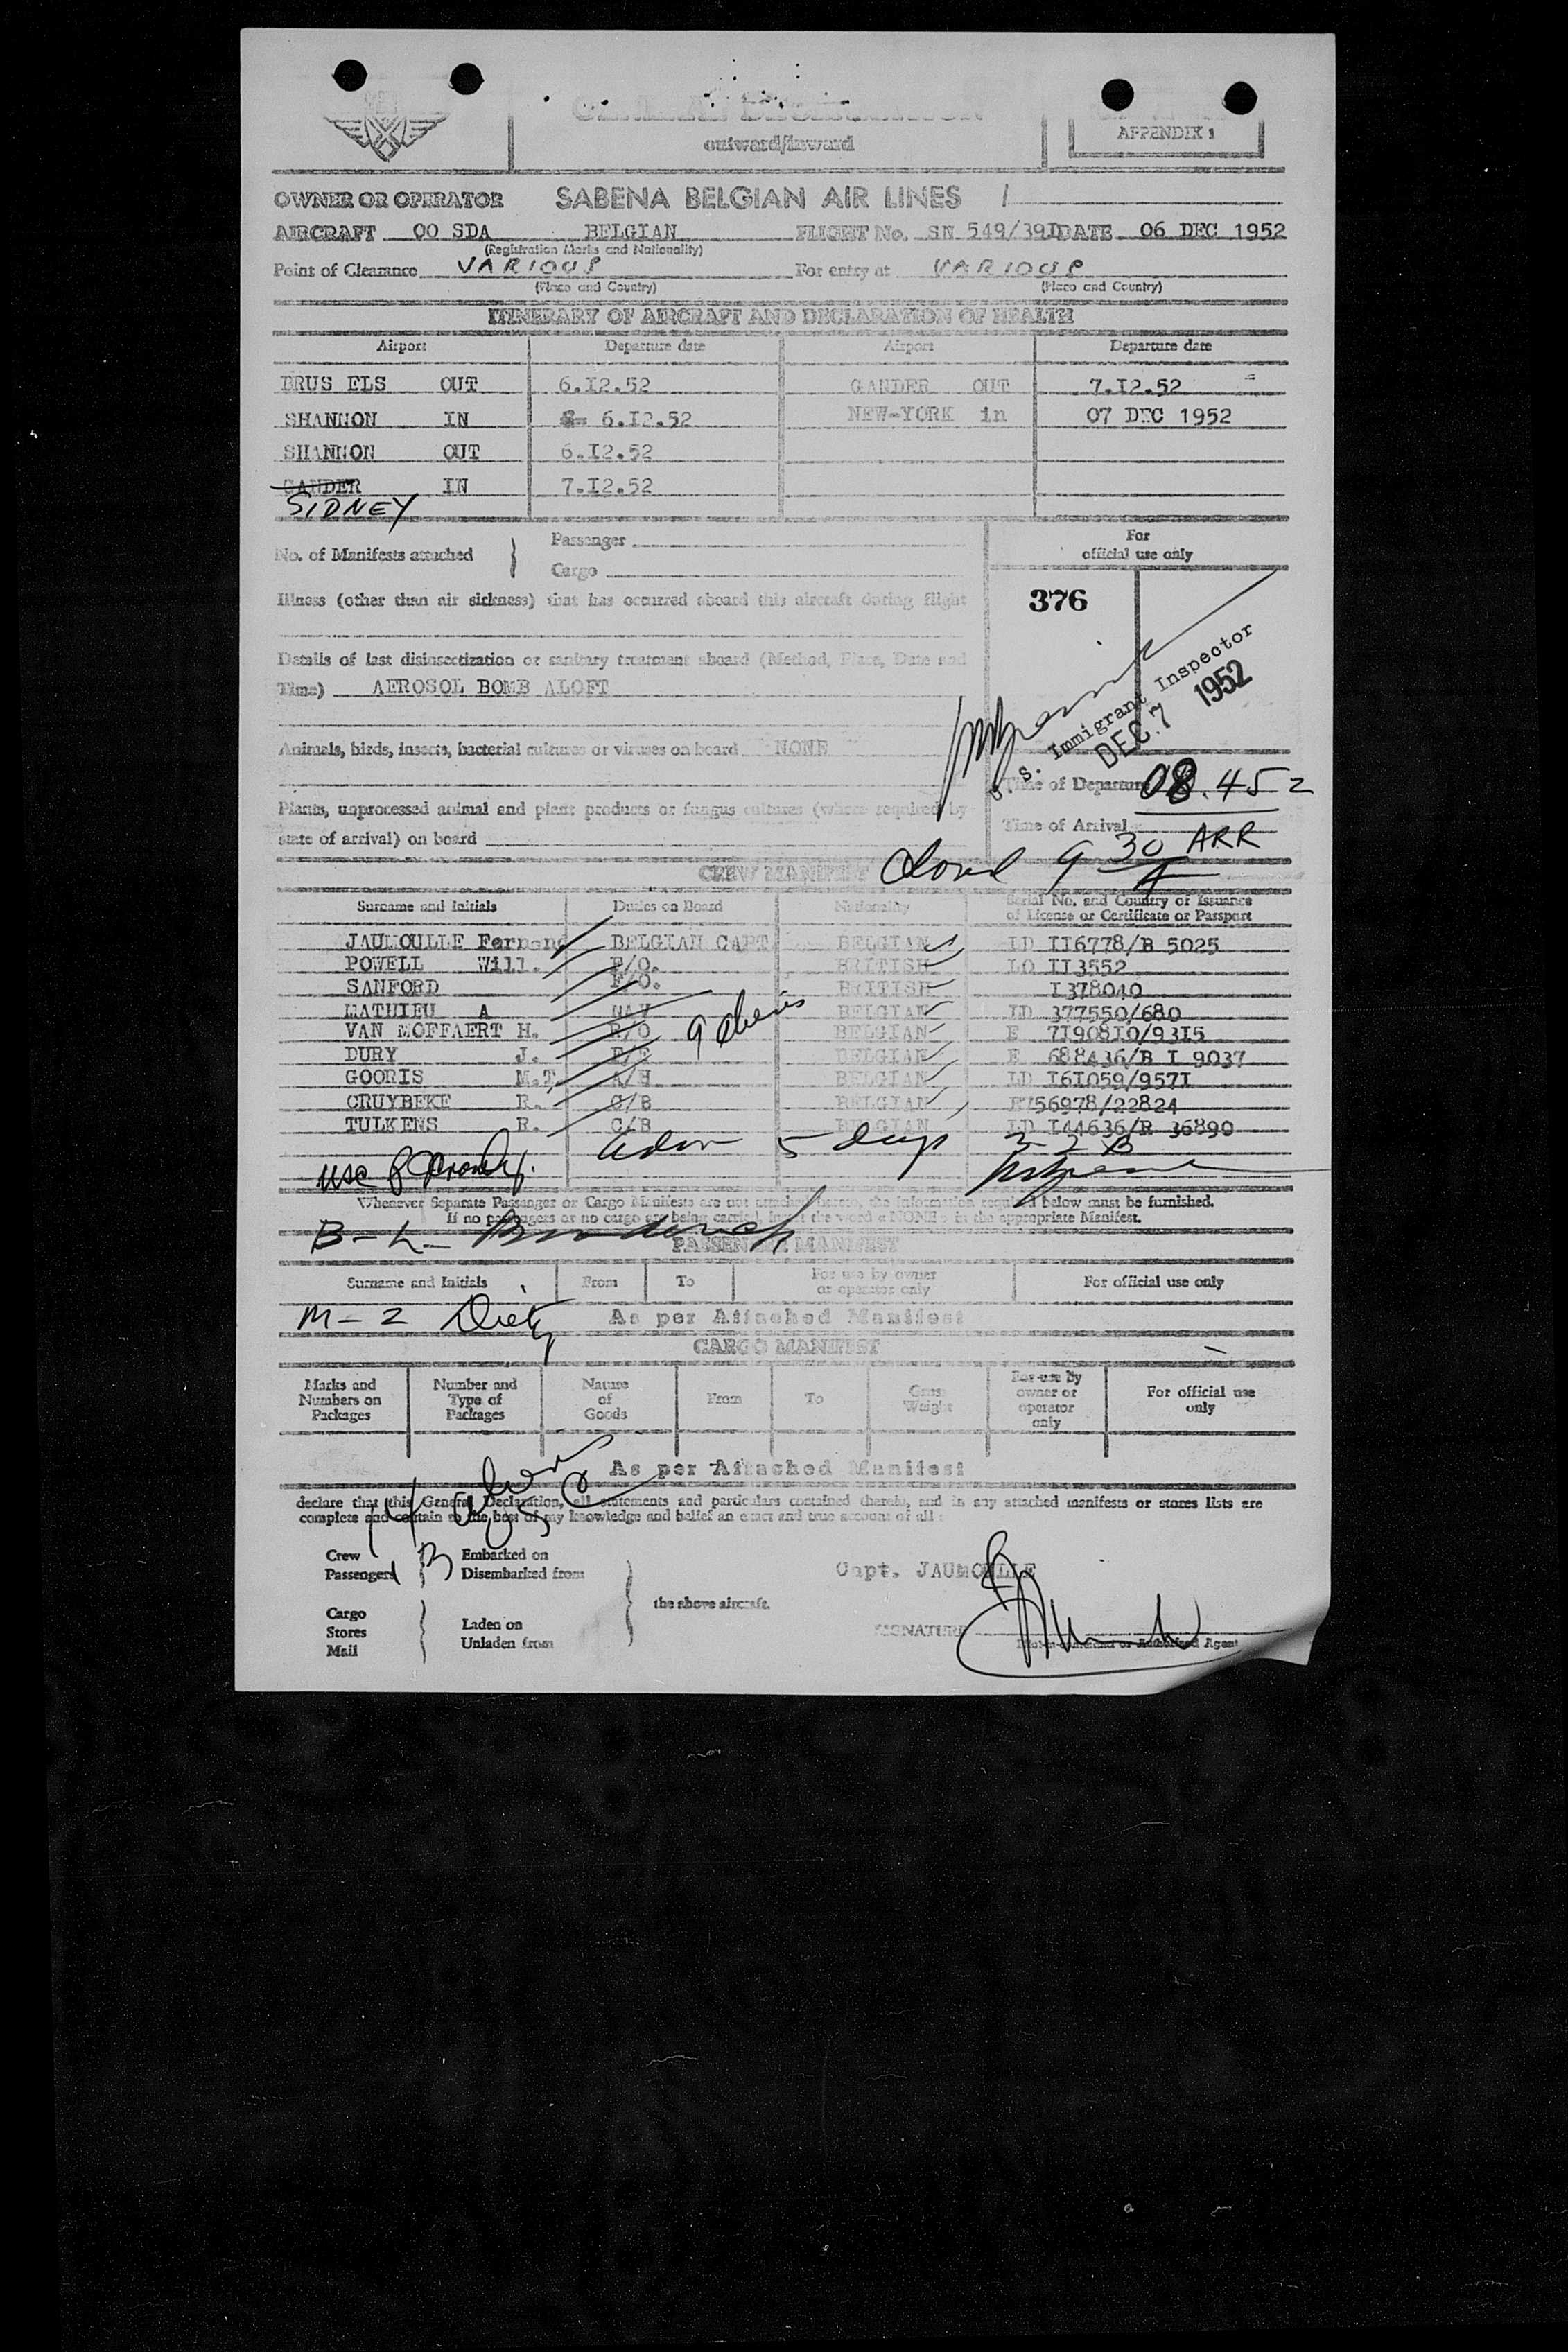 outward/inward
APPENDIX 1
OWNER OR OPERATOR SABENA BELGIAN AIR LINES /
AIRCRAFT OO SDA BELGIAN FLIGHT No. SN 549/391 DATE 06 DEC 1952
(Registration Marks and Nationality)
Point of Clearance VARIOUS For entry at VARIOUS
(Place and Country) (Place and Country)
ITINERARY OF AIRCRAFT AND DECLARATION OF HEALTH
Airport Departure date Airport Departure date
BRUS ELS OUT 6.I2.52 GANDER OUT 7.I2.52
SHANNON IN 6.I2.52 NEW-YORK in 07 DEC 1952
SHANNON OUT 6.I2.52
GANDER IN 7.I2.52
SIDNEY
No. of Manifests attached
Passenger
Cargo
For
official use only
Illness (other than air sickness) that has occurred aboard this aircraft during flight
376
Details of last disinsectization or sanitary treatment aboard (Method, Place, Date and
Time) AEROSOL BOMB ALOFT
S. Immigrant Inspector
DEC. 7 1952
Animals, birds, insects, bacterial cultures or viruses on board NONE
Time of Departure 08.45
Plants, unprocessed animal and plant products or fungus cultures (where required by
state of arrival) on board
Time of Arrival
9 30 ARR
CREW MANIFEST
Surname and Initials Duties on Board Nationality Serial No. and Country of Issuance
of License or Certificate or Passport
JAUMOULLE Fernand BELGIAN CAPT BELGIAN LD II6778/B 5025
POWELL Will. F/O. BRITISH LO II3552
SANFORD F/O. BRITISH I378040
MATHIEU A NAV BELGIAN LD 377550/680
VAN MOFFAERT H. R/O BELGIAN E 7I908I0/93I5
DURY J. BELGIAN E 688436/B I 9037
GOORIS M.T. A/H BELGIAN LD I6I059/957I
CRUYBEKE R. C/B BELGIAN E756978/22824
TULKENS R. C/B BELGIAN LD I44636/R 36890
5 days
Whenever Separate Passenger or Cargo Manifests are not attached hereto, the information required below must be furnished.
If no passengers or no cargo are being carried insert the word « NONE » in the appropriate Manifest.
PASSENGER MANIFEST
Surname and Initials From To For use by owner
or operator only For official use only
M-2
As per Attached Manifest
CARGO MANIFEST
Marks and
Numbers on
Packages
Number and
Type of
Packages
Nature
of
Goods
From
To
Gross
Weight
For use by
owner or
operator
only
For official use
only
As per Attached Manifest
declare that this General Declaration, all statements and particulars contained therein, and in any attached manifests or stores lists are
complete and contain to the best of my knowledge and belief an exact and true account of all :
Crew
Passengers
Embarked on
Disembarked from
Capt. JAUMOULLE
Cargo
Stores
Mail
Laden on
Unladen from
the above aircraft.
SIGNATURE
Pilot-in-command or Authorized Agent